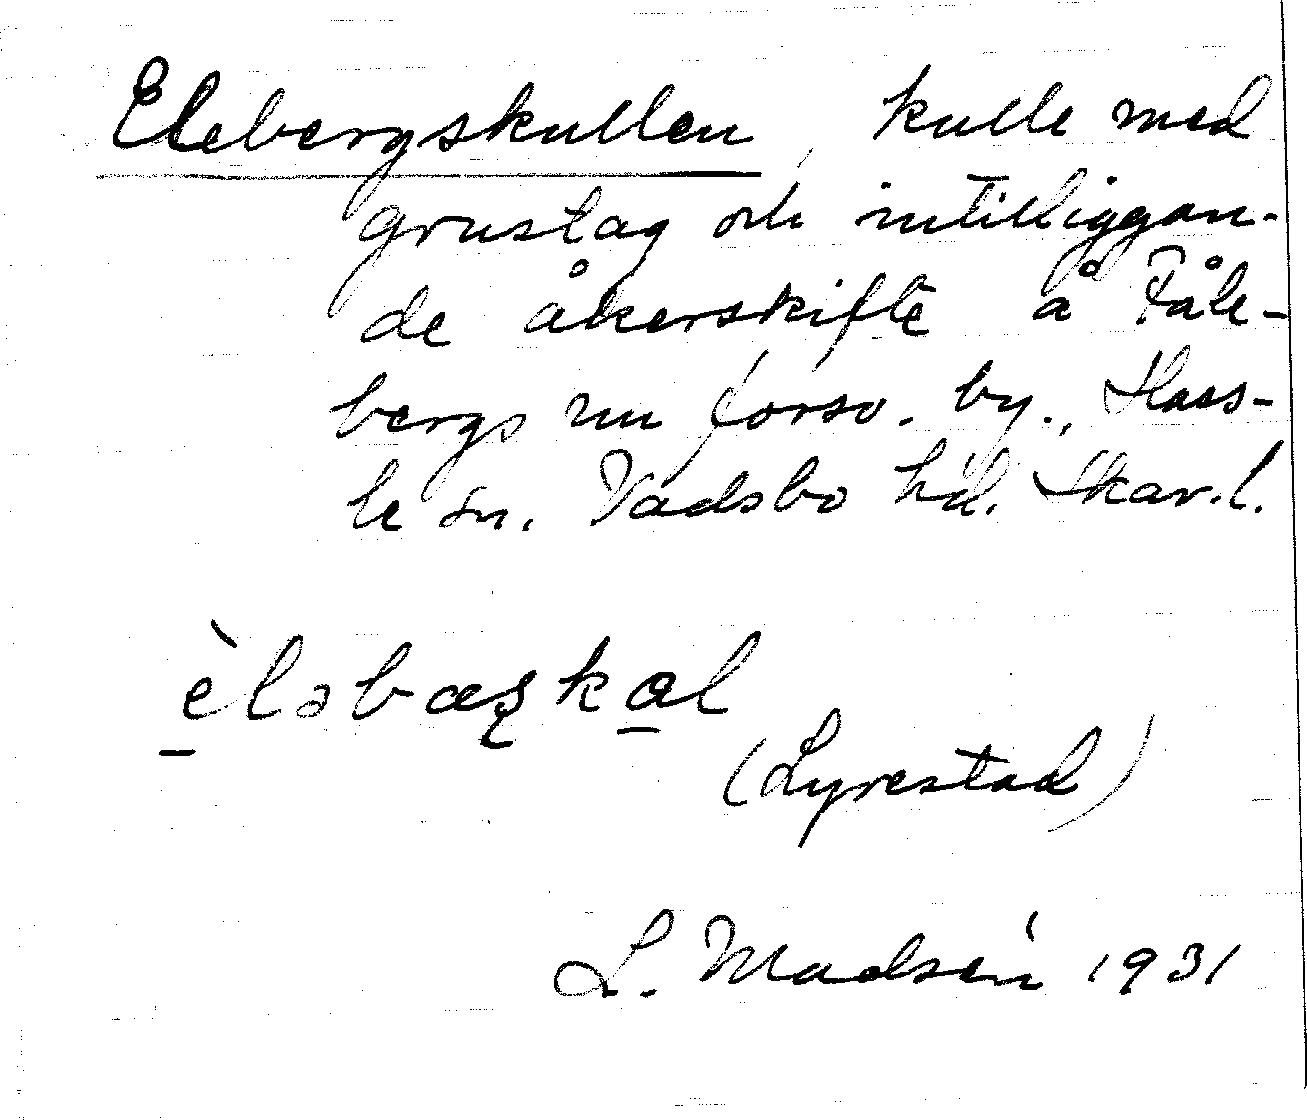 Elebergskullen, kulle med
grustag och intilliggan-
de åkerskifte å Fåle-
bergs nu försv. by., Hass-
le sn. Vadsbo hd. Skar.l.
èləbæʂkol
(Lyrestad)
L. Madsén 1931